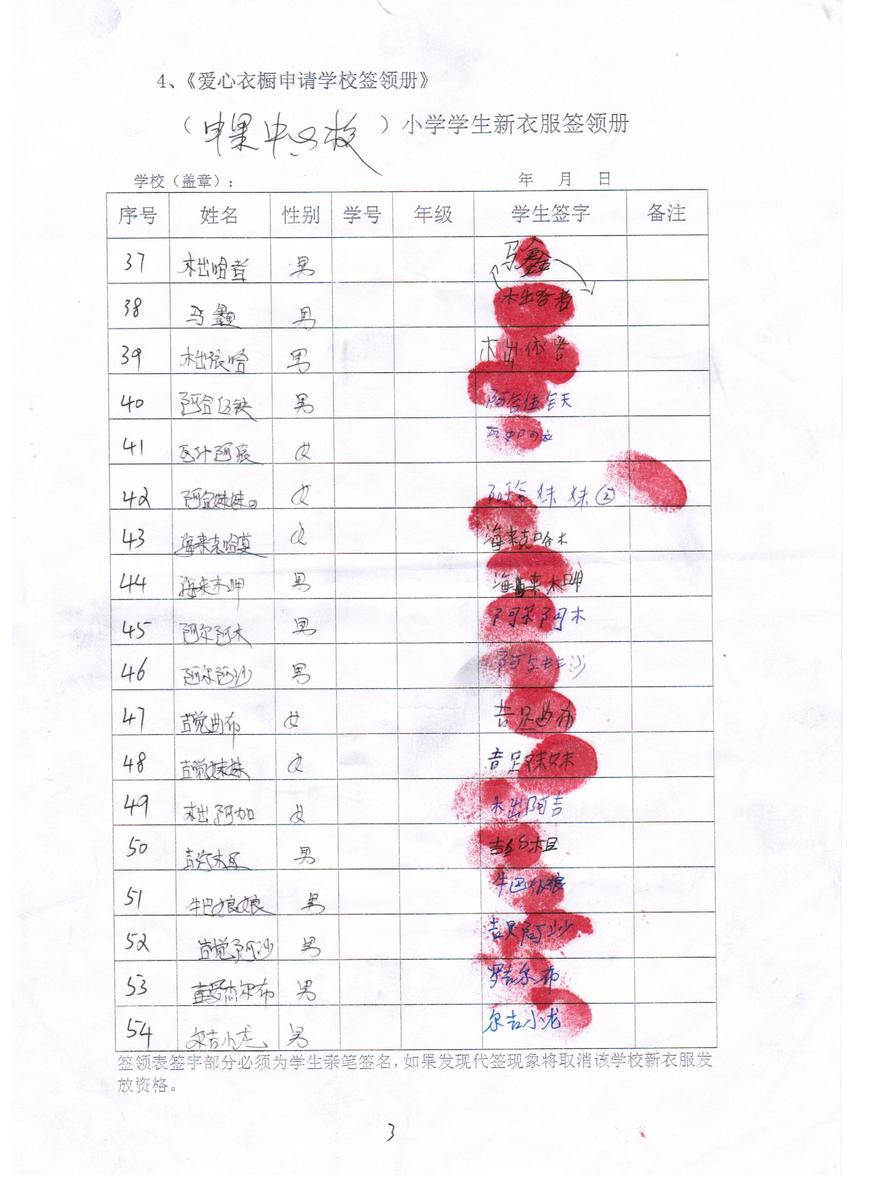 4、《爱心衣橱申请学校签领册》
（申果中心校）小学学生新衣服签领册
学校（盖章）： 年 月 日
序号 姓名 性别 学号 年级 学生签字 备注
37 木出哈 男 马鑫
38 马鑫 男 木出哈
39 木出 哈 男 木出依
40 阿 男 阿
41 阿 女
42 阿 妹妹 女 阿 妹妹②
43 海来克哈莫 女 海来克哈木
44 海来木呷 男 海来木呷
45 阿尔阿木 男 阿尔阿木
46 阿尔阿沙 男 阿 沙
47 吉觉曲布 女 吉足曲布
48 吉觉妹妹 女 吉足妹妹
49 木出阿加 女 木出阿吉
50 吉 木 男 吉 木且
51 牛巴娘娘 男 牛巴 娘
52 吉觉阿沙 男 吉足阿沙
53 尔布 男 罗吉尔布
54 尔吉小龙 男 尔吉小龙
签领表签字部分必须为学生亲笔签名，如果发现代签现象将取消该学校新衣服发
放资格。
3